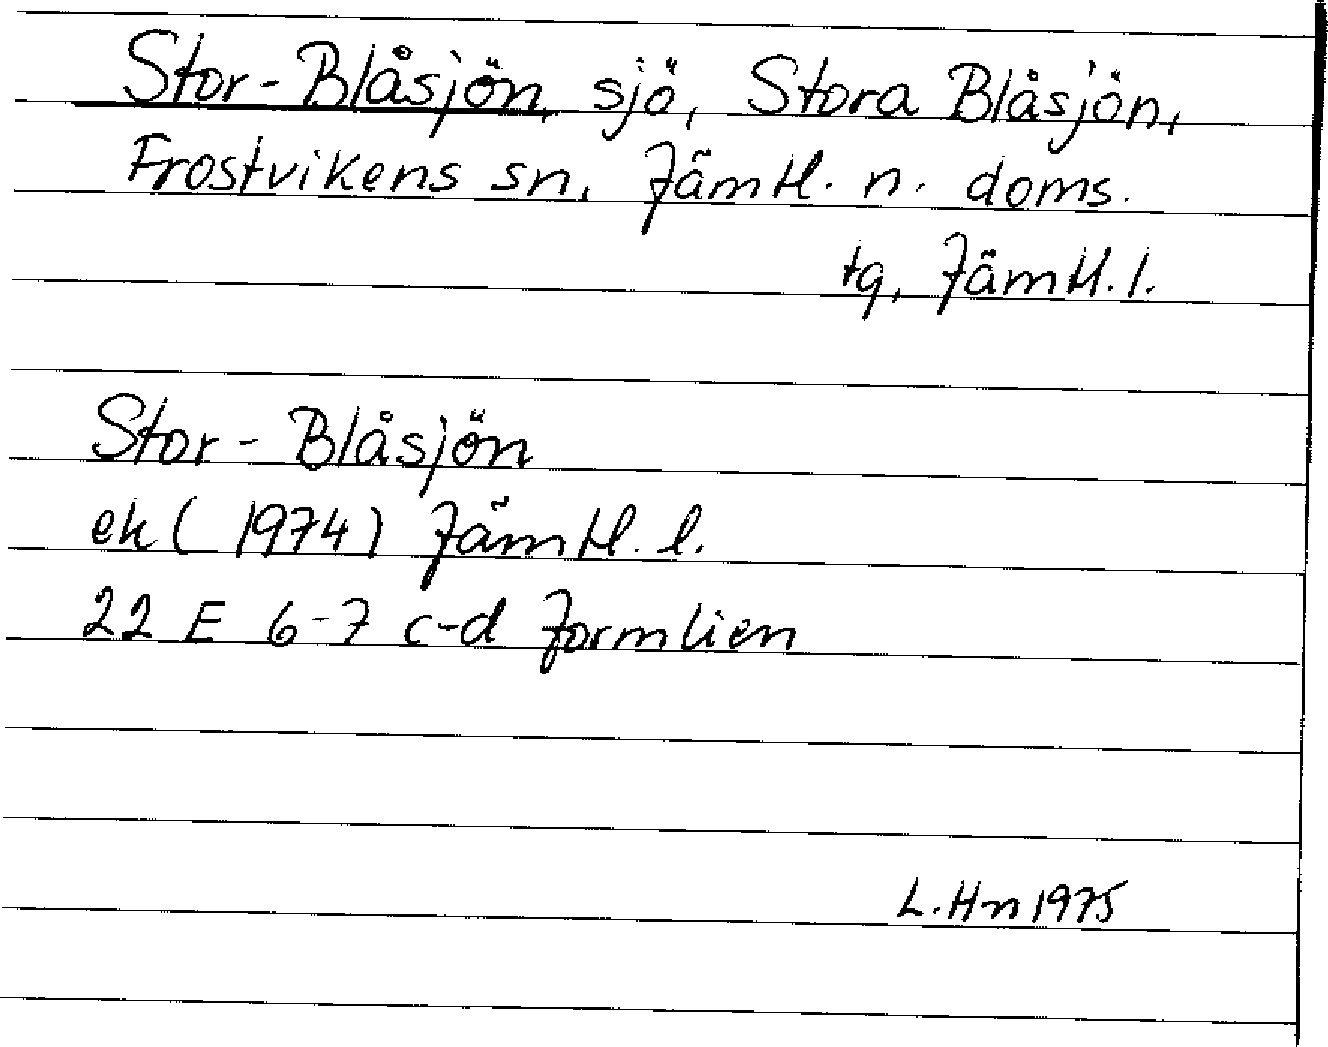 Stor-Blåsjön, sjö, Stora Blåsjön,
Frostvikens sn, Jämtl. n. doms.
tg, Jämtl. l.
Stor-Blåsjön
ek (1974) Jämtl. l.
22 E 6-7 c-d Jormlien
L. Hn 1975